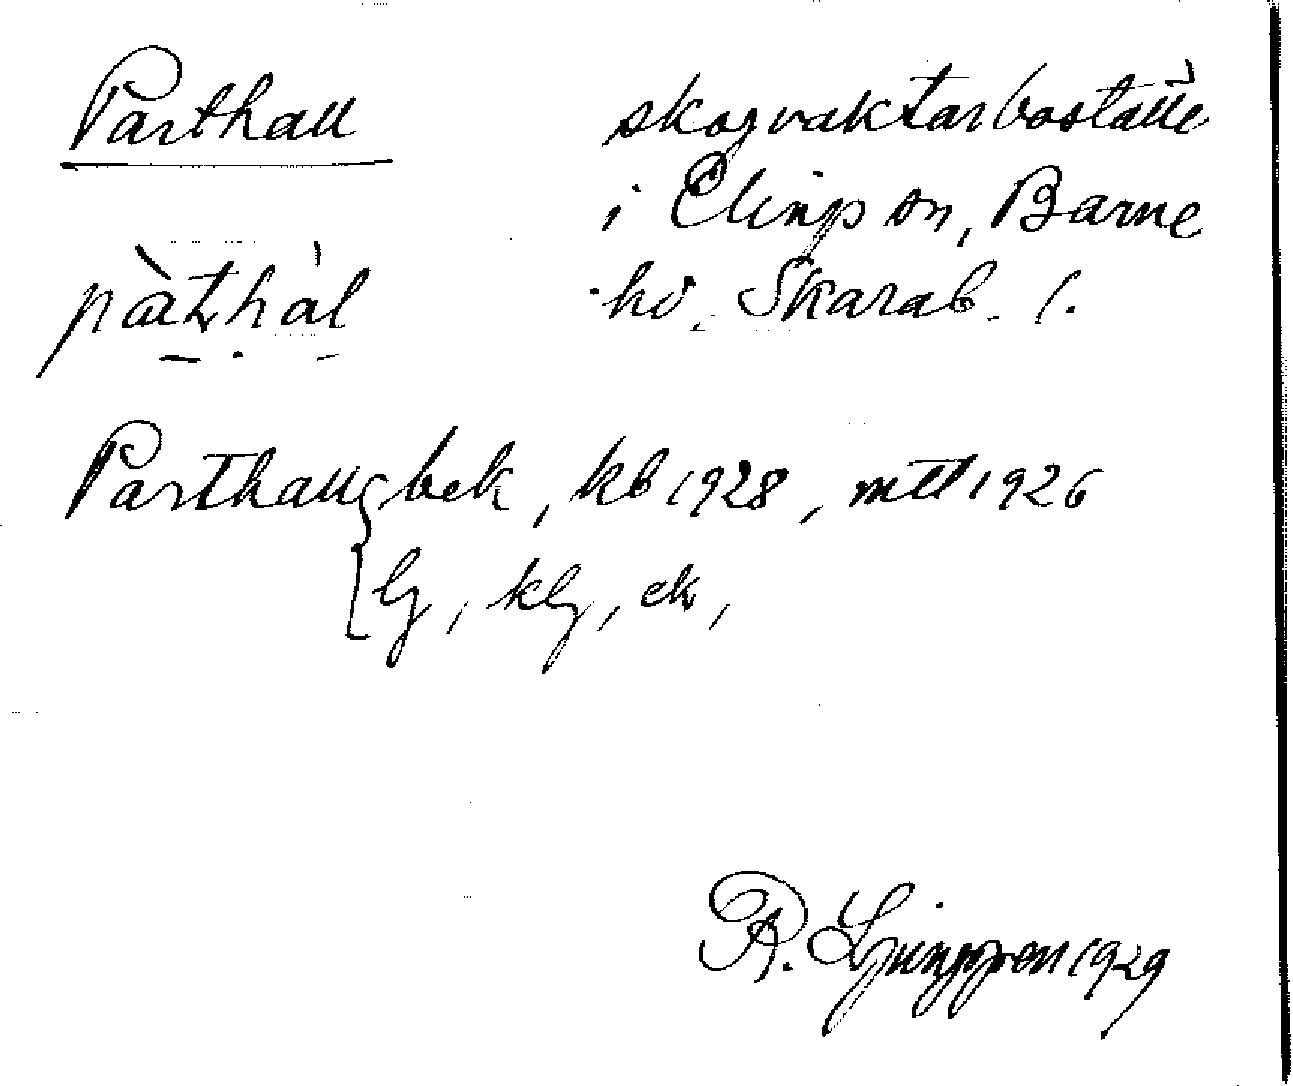 Parthall skogvaktarboställe
i Elings sn, Barne
pàthàl hd. Skarab. l.
Parthall bek, kb 1928, mtl 1926
lj, klj, ek,
R. Ljunggren 1929